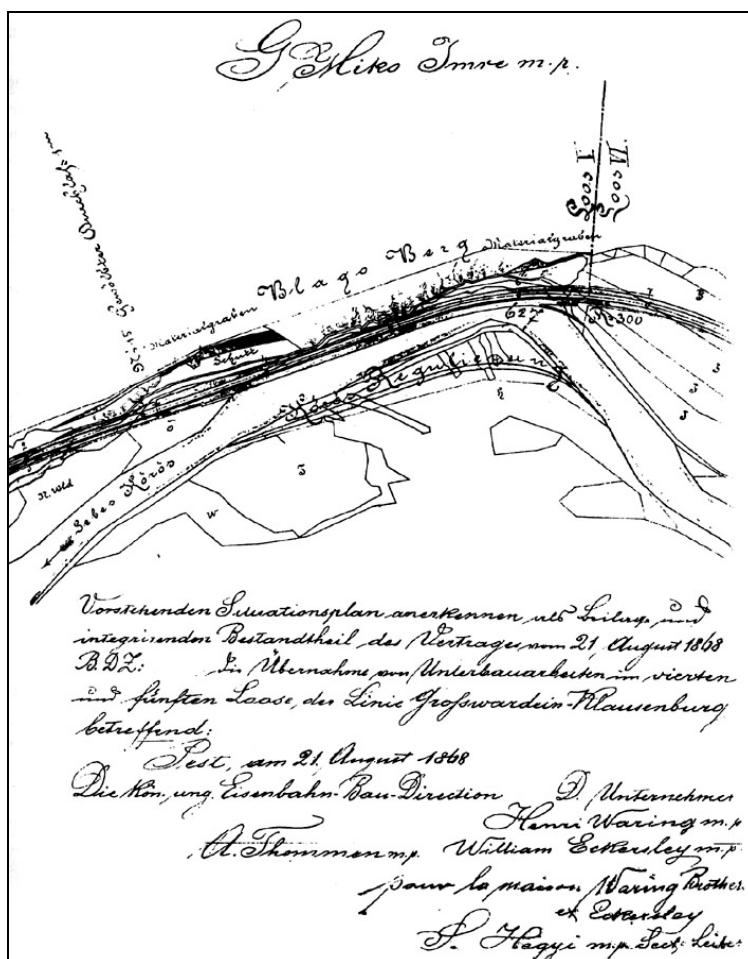 G Miko Imre m. p.
Materialgraben
Blago Berg
Materialgraben
Schutt
627
R=300
Körös Regulierung
N. Wld
Sebes Körös
W
Vorstehenden Situationsplan anerkennen als Beilage und
integrirenden Bestandtheil des Vertrages vom 21. August 1868
B.D.Z: die Übernahme von Unterbauarbeiten im vierten
und fünften Loose, der Linie Großwardein-Klausenburg
betreffend:
Pest, am 21. August 1868
Die kön. ung. Eisenbahn-Bau-Direction
D. Unternehmer
Henri Waring m. p.
A. Thommen m. p. William Eckersley m. p.
pour la maison Waring Brother
et Eckersley
S. Hegyi m. p. Sect: Leiter